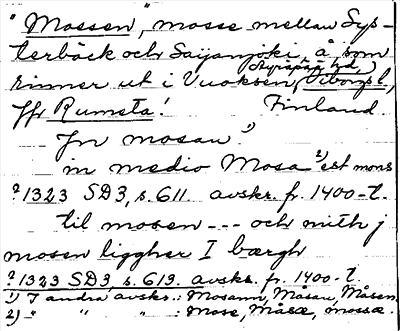 "Mossen", mosse mellan Sys-
terbäck och Saijanjoki, å, som
Äyräpää hd.
rinner ut i Vuoksen, Viborgs l.,
ffr Rumsta! Finland.
Jn mosan 1)
in medio Mosa 2) est mons
? 1323 SD3, s. 611. avskr. fr. 1400-t.
til mosen --- och mith j
mosen liggher I bærgh
? 1323 SD3, s. 613. avskr. fr. 1400-t.
1) I andra avskr.: Mosann, Måsan, Måsen.
2) " " " : Mose, Måsæ, mossæ.